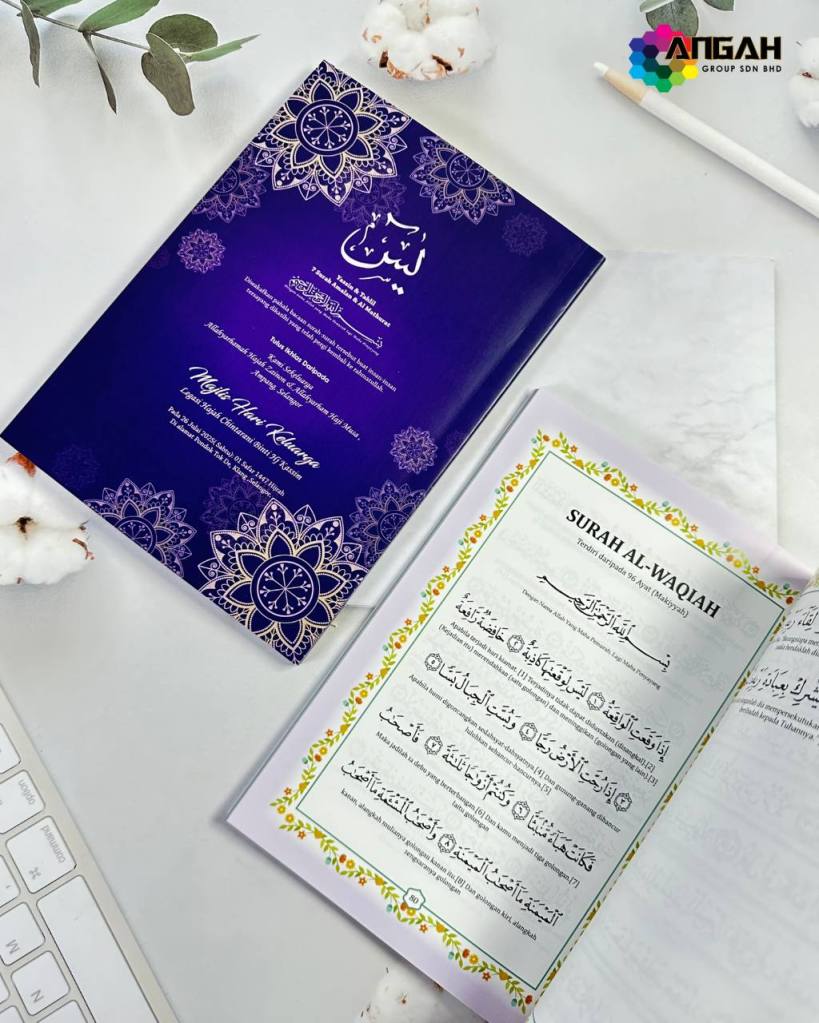 ANGAH
GROUP SDN BHD
يس
Yassin & Tahlil
7 Surah Amalan & Al Mathurat
بِسْمِ اللَّهِ الرَّحْمَٰنِ الرَّحِيمِ
Diwakafkan pahala bacaan surah-surah tersebut buat insan-insan
tersayang dikasihi yang telah pergi kembali ke rahmatullah.
Tulus Ikhlas Daripada
Kami Sekeluarga
Allahyarhamah Hajah Zainon & Allahyarham Haji Musa,
Ampang, Selangor
Majlis Hari Keluarga
Legasi Hajah Chintarani Binti Hj Kassim
Pada 26 Julai 2025( Sabtu), 01 Safar 1447 Hijrah
Di alamat Pondok Tok De, Klang, Selangor
SURAH AL-WAQIAH
Terdiri daripada 96 Ayat (Makiyyah)
بِسْمِ اللَّهِ الرَّحْمَٰنِ الرَّحِيمِ
Dengan Nama Allah Yang Maha Pemurah, Lagi Maha Penyayang
إِذَا وَقَعَتِ الْوَاقِعَةُ ١ لَيْسَ لِوَقْعَتِهَا كَاذِبَةٌ ٢ خَافِضَةٌ رَّافِعَةٌ
Apabila terjadi hari kiamat, [1] Terjadinya tidak dapat didustakan (disangkal).[2]
(Kejadian itu) merendahkan (satu golongan) dan meninggikan (golongan yang lain).[3]
٣ إِذَا رُجَّتِ الْأَرْضُ رَجًّا ٤ وَبُسَّتِ الْجِبَالُ بَسًّا ٥
Apabila bumi digoncangkan sedahsyat-dahsyatnya,[4] Dan gunung-ganang dihancur
luluhkan sehancur-hancurnya,[5]
فَكَانَتْ هَبَاءً مُّنبَثًّا ٦ وَكُنتُمْ أَزْوَاجًا ثَلَاثَةً ٧ فَأَصْحَابُ
Maka jadilah ia debu yang berterbangan [6] Dan kamu menjadi tiga golongan.[7]
Iaitu golongan
الْمَيْمَنَةِ مَا أَصْحَابُ الْمَيْمَنَةِ ٨ وَأَصْحَابُ الْمَشْأَمَةِ مَا أَصْحَابُ
kanan, alangkah mulianya golongan kanan itu.[8] Dan golongan kiri, alangkah
sengsaranya golongan
80
option
command
M
N